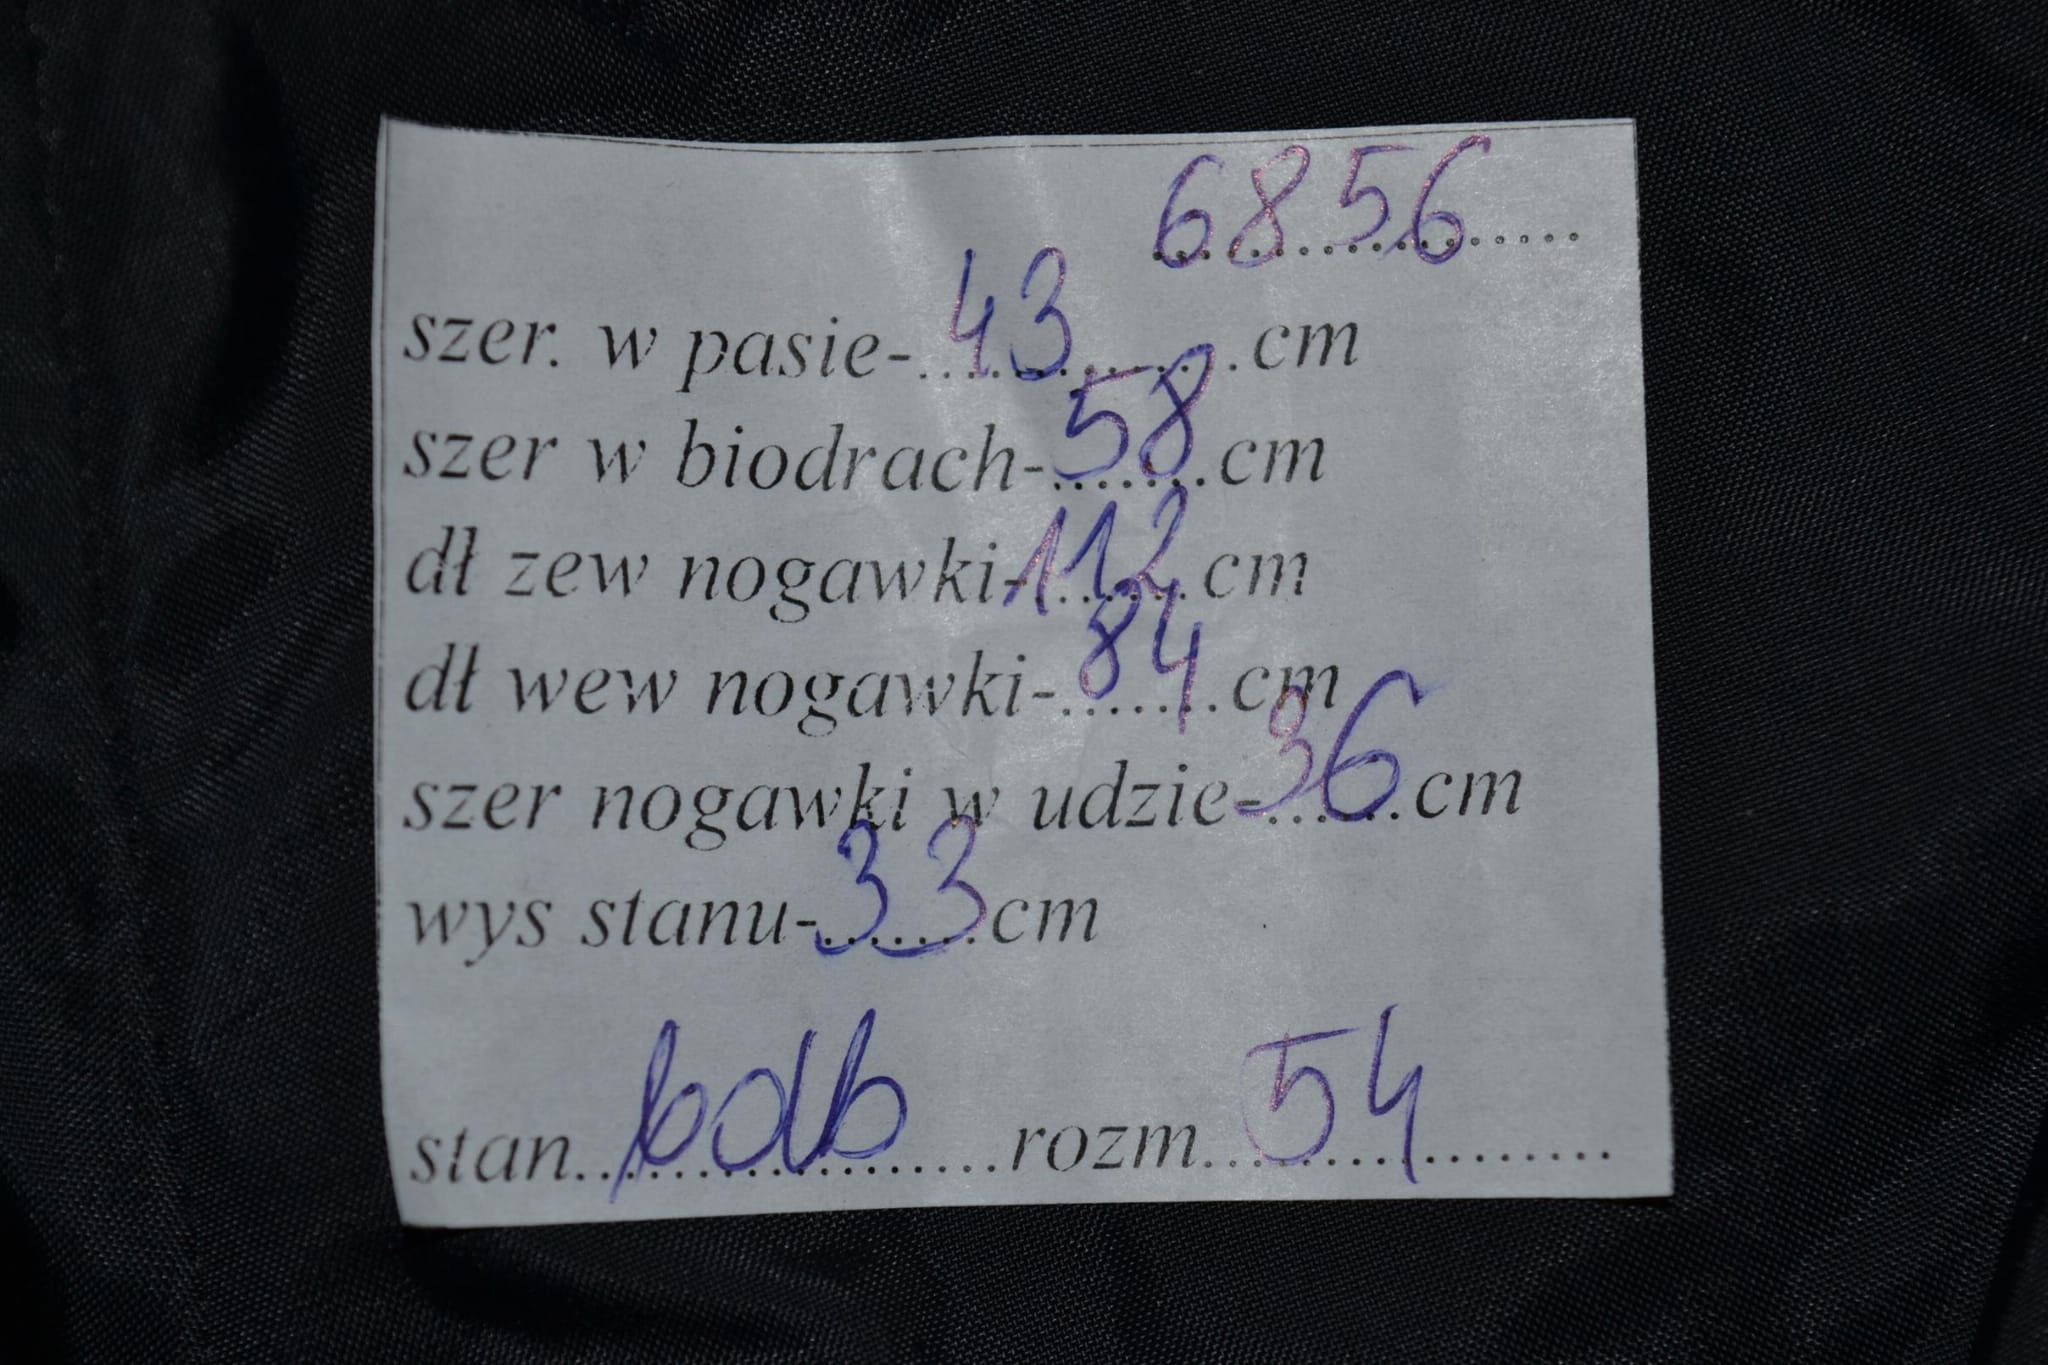 6856
szer. w pasie-43.......cm
szer w biodrach-58.cm
dł zew nogawki-112.cm
dł wew nogawki-84.cm
szer nogawki w udzie-36.cm
wys stanu-33cm
stan..bdb......rozm..54........